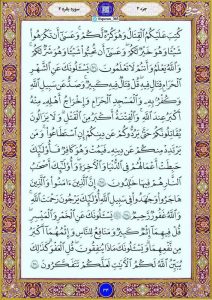 جزء ۲
سوره بقره ۲
كُتِبَ عَلَيْكُمُ ٱلْقِتَالُ وَهُوَ كُرْهٌ لَّكُمْ وَعَسَىٰٓ أَن تَكْرَهُوا۟
شَيْـًٔا وَهُوَ خَيْرٌ لَّكُمْ وَعَسَىٰٓ أَن تُحِبُّوا۟ شَيْـًٔا وَهُوَ شَرٌّ لَّكُمْ
وَٱللَّهُ يَعْلَمُ وَأَنتُمْ لَا تَعْلَمُونَ يَسْـَٔلُونَكَ عَنِ ٱلشَّهْرِ
ٱلْحَرَامِ قِتَالٍ فِيهِ قُلْ قِتَالٌ فِيهِ كَبِيرٌ وَصَدٌّ عَن سَبِيلِ ٱللَّهِ
وَكُفْرٌۢ بِهِۦ وَٱلْمَسْجِدِ ٱلْحَرَامِ وَإِخْرَاجُ أَهْلِهِۦ مِنْهُ
أَكْبَرُ عِندَ ٱللَّهِ وَٱلْفِتْنَةُ أَكْبَرُ مِنَ ٱلْقَتْلِ وَلَا يَزَالُونَ
يُقَـٰتِلُونَكُمْ حَتَّىٰ يَرُدُّوكُمْ عَن دِينِكُمْ إِنِ ٱسْتَطَـٰعُوا۟ وَمَن
يَرْتَدِدْ مِنكُمْ عَن دِينِهِۦ فَيَمُتْ وَهُوَ كَافِرٌ فَأُو۟لَـٰٓئِكَ
حَبِطَتْ أَعْمَـٰلُهُمْ فِى ٱلدُّنْيَا وَٱلْـَٔاخِرَةِ وَأُو۟لَـٰٓئِكَ أَصْحَـٰبُ
ٱلنَّارِ هُمْ فِيهَا خَـٰلِدُونَ إِنَّ ٱلَّذِينَ ءَامَنُوا۟ وَٱلَّذِينَ
هَاجَرُوا۟ وَجَـٰهَدُوا۟ فِى سَبِيلِ ٱللَّهِ أُو۟لَـٰٓئِكَ يَرْجُونَ رَحْمَتَ ٱللَّهِ
وَٱللَّهُ غَفُورٌ رَّحِيمٌ يَسْـَٔلُونَكَ عَنِ ٱلْخَمْرِ وَٱلْمَيْسِرِ
قُلْ فِيهِمَآ إِثْمٌ كَبِيرٌ وَمَنَـٰفِعُ لِلنَّاسِ وَإِثْمُهُمَآ أَكْبَرُ
مِن نَّفْعِهِمَا وَيَسْـَٔلُونَكَ مَاذَا يُنفِقُونَ قُلِ ٱلْعَفْوَ كَذَٰلِكَ
يُبَيِّنُ ٱللَّهُ لَكُمُ ٱلْـَٔايَـٰتِ لَعَلَّكُمْ تَتَفَكَّرُونَ
۳۴